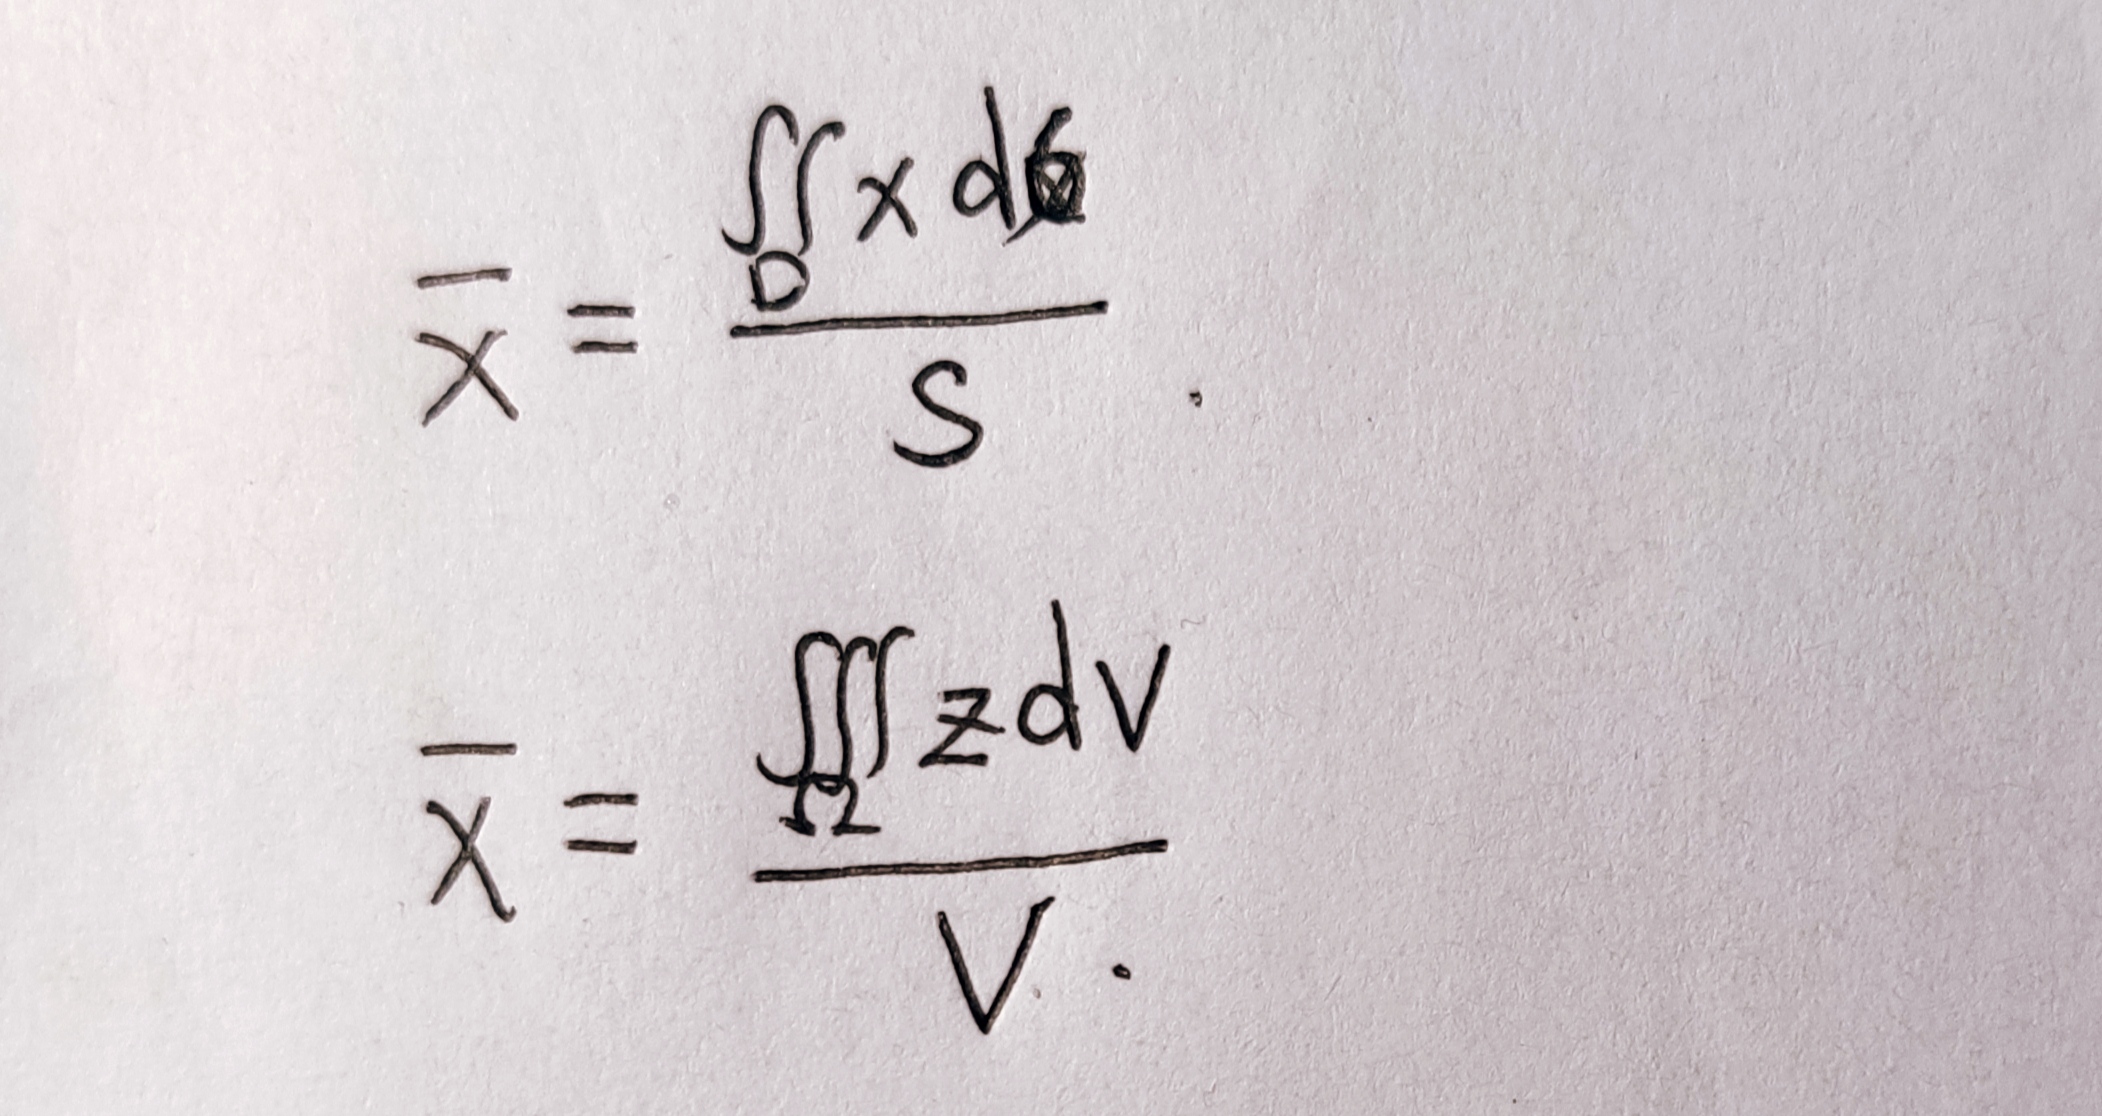 x̄ = ∬_D x dσ / S .
x̄ = ∭_Ω z dV / V .